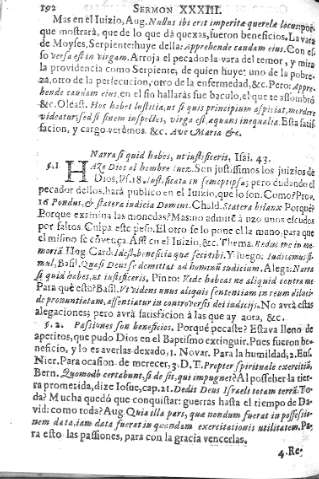 192 SERMON XXXIII.
Mas en el Juizio, Aug. Nullus ibi erit imperitæ querelæ locus, por
que mostrarà, que de lo que dà quexas, fueron beneficios. La vara
de Moyses, Serpiente: huye della: Apprehende caudam eius. Con es
so versa est in virgam. Arroja el pecador la vara del temor, y mira
la providencia como Serpiente, de quien huye: uno de la pobre-
za, otro de la persecucion, otro de la enfermedad, &c. Pero: Appre-
hende caudam eius, en el fin hallaràs ser baculo, el que te assombrò
&c. Oleast. Hoc habet Iustitia, ut si quis principium aspiciat, mordere
videatur, sed si finem inspexeris, virga est, æquans inæqualia. Esta satis
facion, y cargo verèmos. &c. Ave Maria &c.
Narra si quid habes, ut iustificeris, Isai. 43.
§.1 HAze Dios al hombre juez. Son justissimos los juizios de
Dios, Ps. 18. Iustificata in semetipsa; pero citando el
pecador dellos, harà publico en el Juizio, que lo son. Como? Pro.
16 Pondus, & statera iudicia Domini. Chald. Statera bilanx Porque?
Porque examina las monedas? Mas: no admite à uno unos escudos
por faltos Culpa este peso. El otro se lo pone en la mano, para que
el mismo se cōvença. Assi en el Juizio, &c. Thema. Reduc me in me-
moriā Hug Card: Ides, beneficia que fecitibi. Y luego: Iudicemur si-
mul, Basil. Quasi Deus se demittat ad hominū iudicium. Alega: Narra
si quid habes, ut iustificeris, Pinto: Vide habeas ne aliquid contra me
Para què esto? Basil. Ut videns unus aliquis sententiam in reum dilatè
de pronuntiatam, assentiatur in controversis dei iudicijs. No avrà estas
alegaciones; pero avrà satisfacion à las que ay aora, &c.
§. 2. Passiones son beneficios. Porquè pecaste? Estava lleno de
aperitos, que pudo Dios en el Baptismo extinguir. Pues fueron be-
neficio, y lo es averlas dexado, 1. Novar. Para la humildad, 2. Eus.
Nier. Para ocasion. de merecer, 3. D. T. Propter spirituale exercitiū,
Bern. Quomodò certabunt, si desit, qui impugnet? Al posseher la tier-
ra prometida, dize Josue, cap. 21. Dedit Deus Israeli totam terrā. To-
da? Mucha quedó que conquistar: guerras hasta el tiempo de Da-
vid: como toda? Aug Quia illa pars, quæ nondum fuerat in possessio-
nem data, iam data fuerat in quendam exercitationis utilitatem. Pa-
ra esto las passiones, para con la gracia vencerlas.
4. Re-